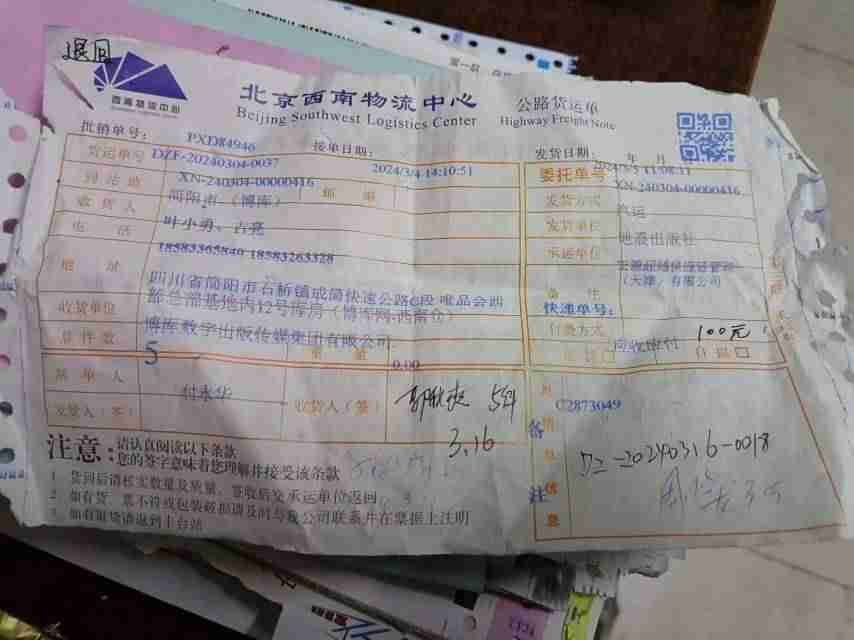 退回
西南物流中心
北京西南物流中心
Beijing Southwest Logistics Center
公路货运单
Highway Freight Note
批销单号: PXD84946
接单日期: 2024/3/4 14:10:51
发货日期: 年 月
2024/3/5 11:08:11
货运单号 DZF-20240304-0037
委托单号 XN-240304-00000416
到站站 XN-240304-00000416
简阳市(博库)
发货方式 汽运
收货人 叶小勇、古亮
发货单位 地震出版社
电话 18583365840 18583263328
承运单位
(天津)有限公司
地址 四川省简阳市石桥镇成简快速公路6段 唯品会西
部总部基地内12号库房(博库网-西南仓)
备注
快递单号:
收货单位 博库数字出版传媒集团有限公司
付费方式 应收应付 100元
自提
总件数 5
重量 0.00
派单人 付永华
收货人(签)
5件
3.16
发货人(签)
备注
信息
C2873049
DZ-20240316-0018
注意:
请认真阅读以下条款
您的签字意味着您理解并接受该条款
1 货到后请核实数量及质量、签收后交承运单位返回
2 如有货、票不符或包装破损请及时与我公司联系并在票据上注明
3 如有退货请退到丰台站